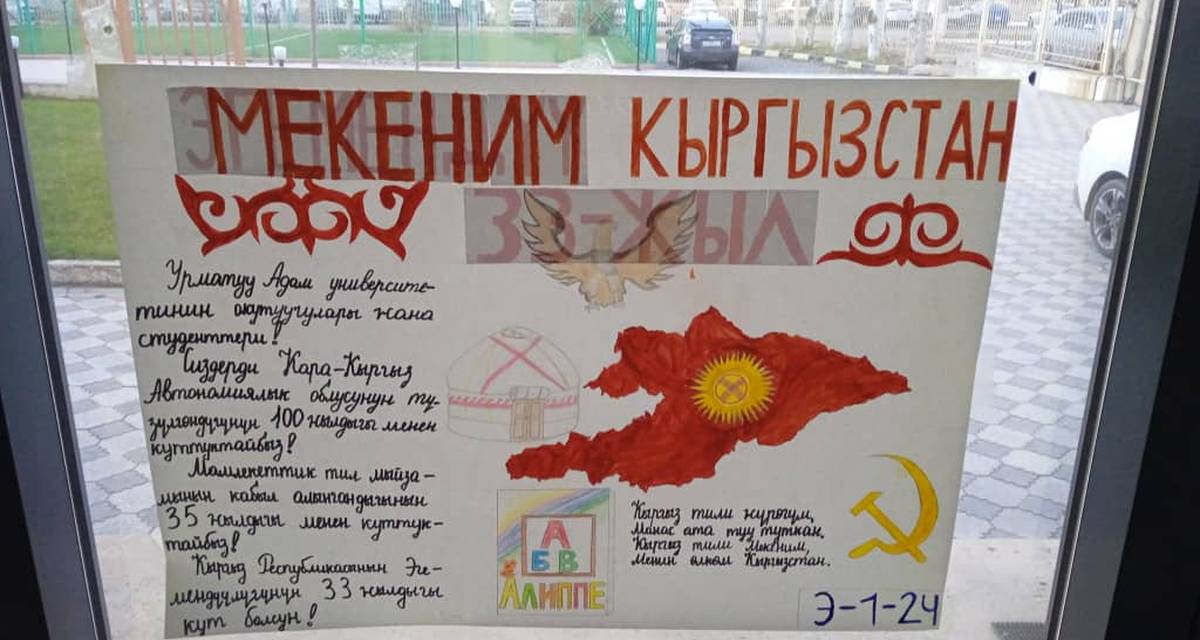 МЕКЕНИМ КЫРГЫЗСТАН
33-ЖЫЛ
Урматуу Адам университе-
тинин окутуучулары жана
студенттери!
Сиздерди Кара-Кыргыз
Автономиялык облусунун тү-
зүлгөндүгүнүн 100 жылдыгы менен
куттуктайбыз!
Мамлекеттик тил мыйза-
мынын кабыл алынгандыгынын
35 жылдыгы менен куттук-
тайбыз!
Кыргыз Республикасынын Эге-
мендүүлүгүнүн 33 жылдыгы
кут болсун!
А
БВ
АЛИППЕ
Кыргыз тили жүрөгүм,
Манас ата туу туткан.
Кыргыз тили Мекеним,
Менин өлкөм Кыргызстан.
Э-1-24